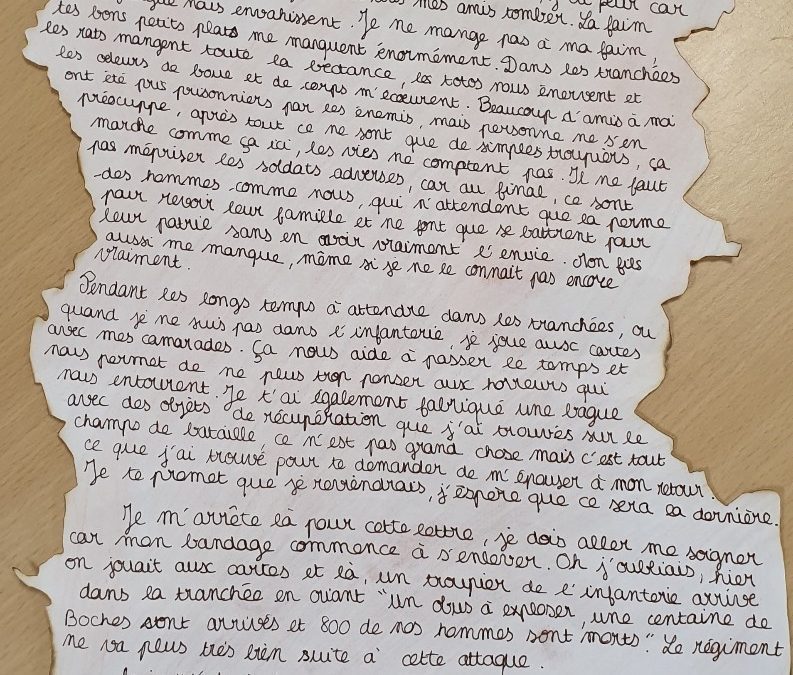 nous envahissent. Je ne mes amis tomber. La faim car
tes bons petits plats me manquent énormément. Je ne mange pas à ma faim,
les rats mangent toute la bectance, les totos nous énervent et Dans les tranchées
les odeurs de boue et de corps m'écoeurent. Beaucoup d'amis à moi
ont été pris prisonniers par les énemis, mais personne ne s'en
préocuppe, après tout ce ne sont que de simples troupiers, ça
marche comme ça ici, les vies ne comptent pas. Il ne faut
pas mépriser les soldats adverses, car au final, ce sont
des hommes comme nous, qui n'attendent que la perme
pour revoir leur famille et ne font que se battrent pour
leur patrie sans en avoir vraiment l'envie. Mon fils
aussi me manque, même si je ne le connait pas encore
vraiment.
Pendant les longs temps à attendre dans les tranchées, ou
quand je ne suis pas dans l'infanterie, je joue aux cartes
avec mes camarades. Ça nous aide à passer le temps et
nous permet de ne plus trop penser aux horreurs qui
nous entourent. Je t'ai également fabriqué une bague
avec des objets de récupération que j'ai trouvés sur le
champs de bataille, ce n'est pas grand chose mais c'est tout
ce que j'ai trouvé pour te demander de m'épouser à mon retour.
Je te promet que je reviendrais, j'éspère que ce sera la dernière.
Je m'arrête là pour cette lettre, je dois aller me soigner
car mon bandage commence à s'enlever. Oh j'oubliais, hier
on jouait aux cartes et là, un troupier de l'infanterie arrive
dans la tranchée en criant "un obus à exploser, une centaine de
Boches sont arrivés et 800 de nos hommes sont morts." Le régiment
ne va plus très bien suite à cette attaque.